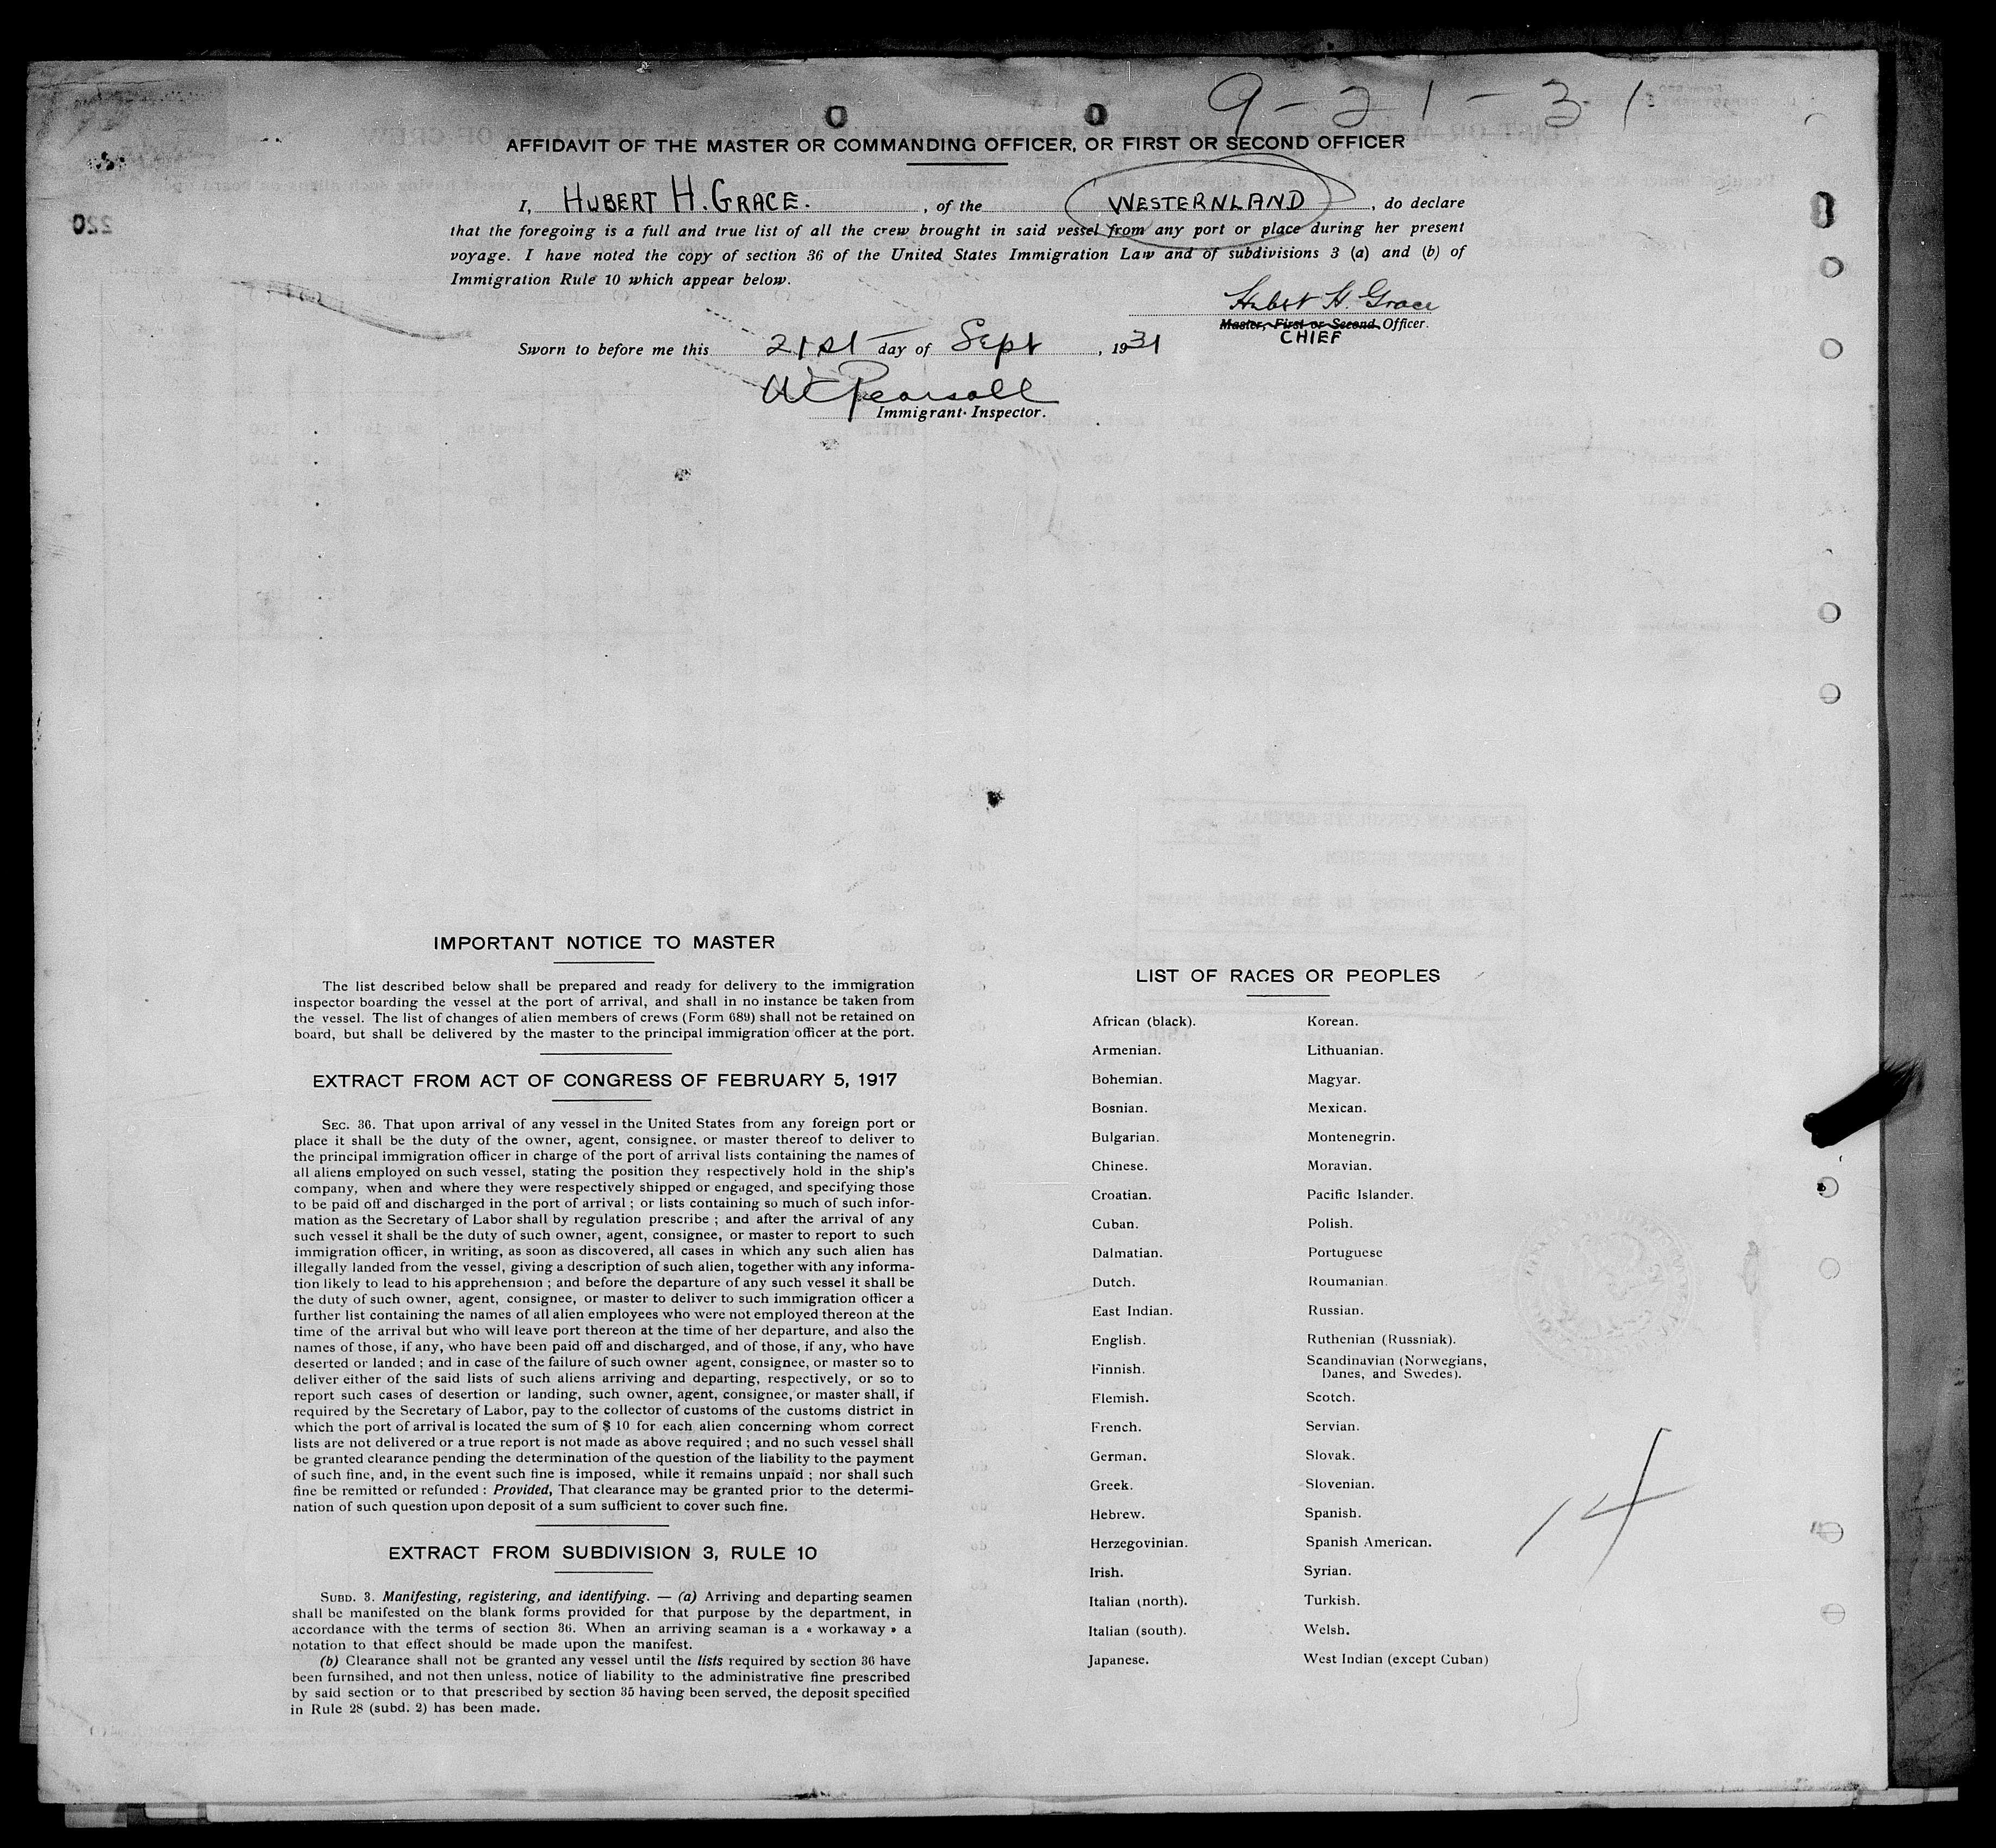 9-21-31
AFFIDAVIT OF THE MASTER OR COMMANDING OFFICER, OR FIRST OR SECOND OFFICER
I, HUBERT H. GRACE. , of the WESTERNLAND , do declare
that the foregoing is a full and true list of all the crew brought in said vessel from any port or place during her present
voyage. I have noted the copy of section 36 of the United States Immigration Law and of subdivisions 3 (a) and (b) of
Immigration Rule 10 which appear below.
Hubert H. Grace
Master, First or Second Officer.
CHIEF
Sworn to before me this 21st day of Sept , 1931
W C Pearsall
Immigrant Inspector.
220
IMPORTANT NOTICE TO MASTER
The list described below shall be prepared and ready for delivery to the immigration
inspector boarding the vessel at the port of arrival, and shall in no instance be taken from
the vessel. The list of changes of alien members of crews (Form 689) shall not be retained on
board, but shall be delivered by the master to the principal immigration officer at the port.
EXTRACT FROM ACT OF CONGRESS OF FEBRUARY 5, 1917
SEC. 36. That upon arrival of any vessel in the United States from any foreign port or
place it shall be the duty of the owner, agent, consignee, or master thereof to deliver to
the principal immigration officer in charge of the port of arrival lists containing the names of
all aliens employed on such vessel, stating the position they respectively hold in the ship's
company, when and where they were respectively shipped or engaged, and specifying those
to be paid off and discharged in the port of arrival ; or lists containing so much of such infor-
mation as the Secretary of Labor shall by regulation prescribe ; and after the arrival of any
such vessel it shall be the duty of such owner, agent, consignee, or master to report to such
immigration officer, in writing, as soon as discovered, all cases in which any such alien has
illegally landed from the vessel, giving a description of such alien, together with any informa-
tion likely to lead to his apprehension ; and before the departure of any such vessel it shall be
the duty of such owner, agent, consignee, or master to deliver to such immigration officer a
further list containing the names of all alien employees who were not employed thereon at the
time of the arrival but who will leave port thereon at the time of her departure, and also the
names of those, if any, who have been paid off and discharged, and of those, if any, who have
deserted or landed ; and in case of the failure of such owner agent, consignee, or master so to
deliver either of the said lists of such aliens arriving and departing, respectively, or so to
report such cases of desertion or landing, such owner, agent, consignee, or master shall, if
required by the Secretary of Labor, pay to the collector of customs of the customs district in
which the port of arrival is located the sum of $ 10 for each alien concerning whom correct
lists are not delivered or a true report is not made as above required ; and no such vessel shall
be granted clearance pending the determination of the question of the liability to the payment
of such fine, and, in the event such fine is imposed, while it remains unpaid ; nor shall such
fine be remitted or refunded : Provided, That clearance may be granted prior to the determi-
nation of such question upon deposit of a sum sufficient to cover such fine.
EXTRACT FROM SUBDIVISION 3, RULE 10
SUBD. 3. Manifesting, registering, and identifying. — (a) Arriving and departing seamen
shall be manifested on the blank forms provided for that purpose by the department, in
accordance with the terms of section 36. When an arriving seaman is a « workaway » a
notation to that effect should be made upon the manifest.
(b) Clearance shall not be granted any vessel until the lists required by section 36 have
been furnsihed, and not then unless, notice of liability to the administrative fine prescribed
by said section or to that prescribed by section 35 having been served, the deposit specified
in Rule 28 (subd. 2) has been made.
LIST OF RACES OR PEOPLES
African (black).
Armenian.
Bohemian.
Bosnian.
Bulgarian.
Chinese.
Croatian.
Cuban.
Dalmatian.
Dutch.
East Indian.
English.
Finnish.
Flemish.
French.
German.
Greek.
Hebrew.
Herzegovinian.
Irish.
Italian (north).
Italian (south).
Japanese.
Korean.
Lithuanian.
Magyar.
Mexican.
Montenegrin.
Moravian.
Pacific Islander.
Polish.
Portuguese
Roumanian.
Russian.
Ruthenian (Russniak).
Scandinavian (Norwegians,
Danes, and Swedes).
Scotch.
Servian.
Slovak.
Slovenian.
Spanish.
Spanish American.
Syrian.
Turkish.
Welsh.
West Indian (except Cuban)
14